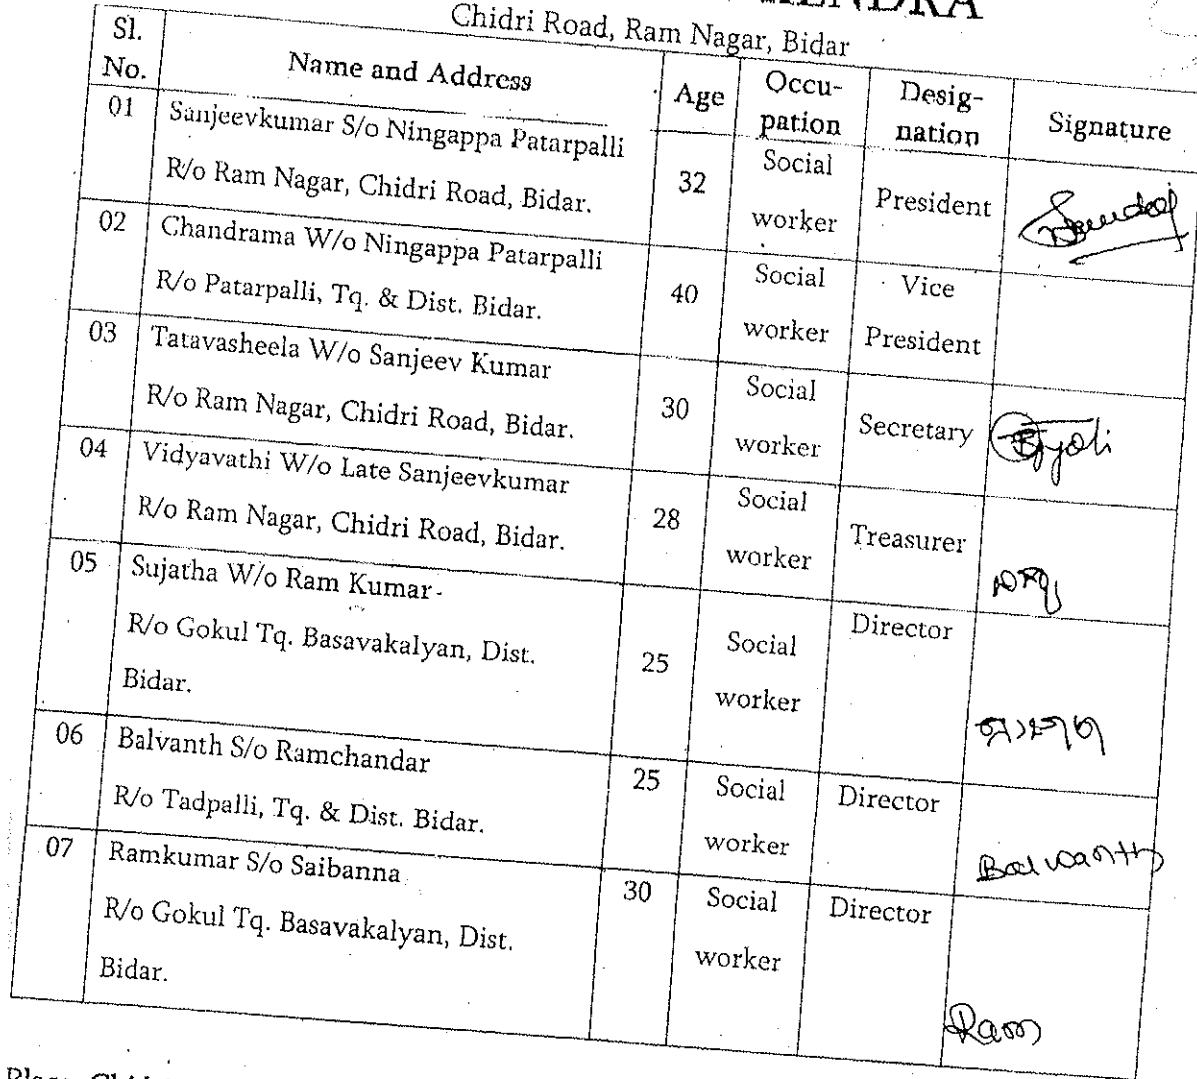 Chidri Road, Ram Nagar, Bidar
Sl. No. Name and Address Age Occu-pation Desig-nation Signature
01 Sanjeevkumar S/o Ningappa Patarpalli
R/o Ram Nagar, Chidri Road, Bidar.
32 Social worker President
02 Chandrama W/o Ningappa Patarpalli
R/o Patarpalli, Tq. & Dist. Bidar.
40 Social worker Vice President
03 Tatavasheela W/o Sanjeev Kumar
R/o Ram Nagar, Chidri Road, Bidar.
30 Social worker Secretary
04 Vidyavathi W/o Late Sanjeevkumar
R/o Ram Nagar, Chidri Road, Bidar.
28 Social worker Treasurer
05 Sujatha W/o Ram Kumar
R/o Gokul Tq. Basavakalyan, Dist.
Bidar.
25 Social worker Director
06 Balvanth S/o Ramchandar
R/o Tadpalli, Tq. & Dist. Bidar.
25 Social worker Director Balvanth
07 Ramkumar S/o Saibanna
R/o Gokul Tq. Basavakalyan, Dist.
Bidar.
30 Social worker Director Ram